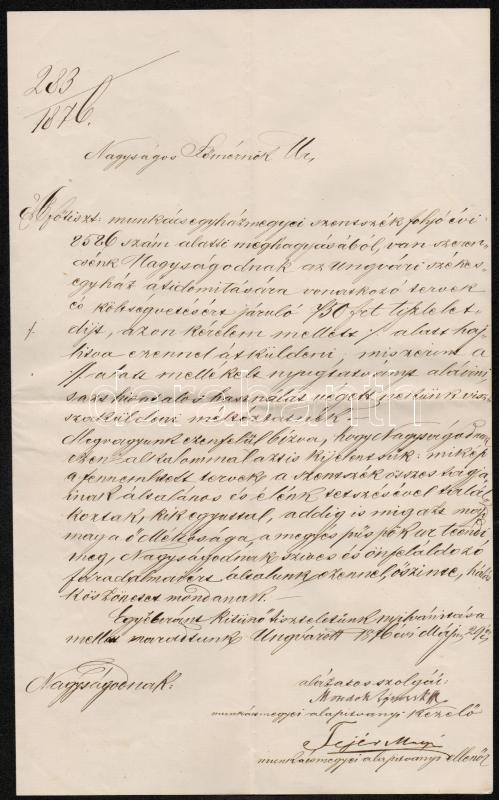 283
1876.
Nagyságos Főmérnök Úr,
A főtiszt: munkács egyházmegyei szentszék folyó évi
2526 szám alatti meghagyásából, van szeren-
csénk Nagyságodnak az Ungvári székes-
egyház átidomitására vonatkozó tervek
és költségvetésért járuló 750 frt tisztelet
dijt, azon kérelem mellett /. alatt haj-
/. litva ezennel átküldeni, miszerént a
//. alatti mellékelt nyugtatványt aláirni,
s aktiváltató használat végett vissz-
szaküldeni méltóztatnék.
Megvagyunk ezenfelül bizva, hogy Nagyságodnak
ezen alkalommal azt is kijelentsük: mikép
a fennemlitett tervek a szentszék összes tagja-
inak általános és élénk tetszésével talál-
koztak, kik egyuttal, addig is mig azt maj
maga ő Méltósága, a megyés püspök ur teendi
meg, Nagyságodnak szives és önfeláldozó
fáradalmaiért általunk ezennel, őszinte, hálás
köszönetet mondanak.
Egyébiránt kitünő tiszteletünk nyilvánitása
mellett maradtunk Ungvárott 1876 évi Május 29én
Nagyságodnak:
alázatos szolgái:
munkácsmegyei alapitványi kezelő
Fejér
munkácsmegyei alapitványi ellenőr
darabanth